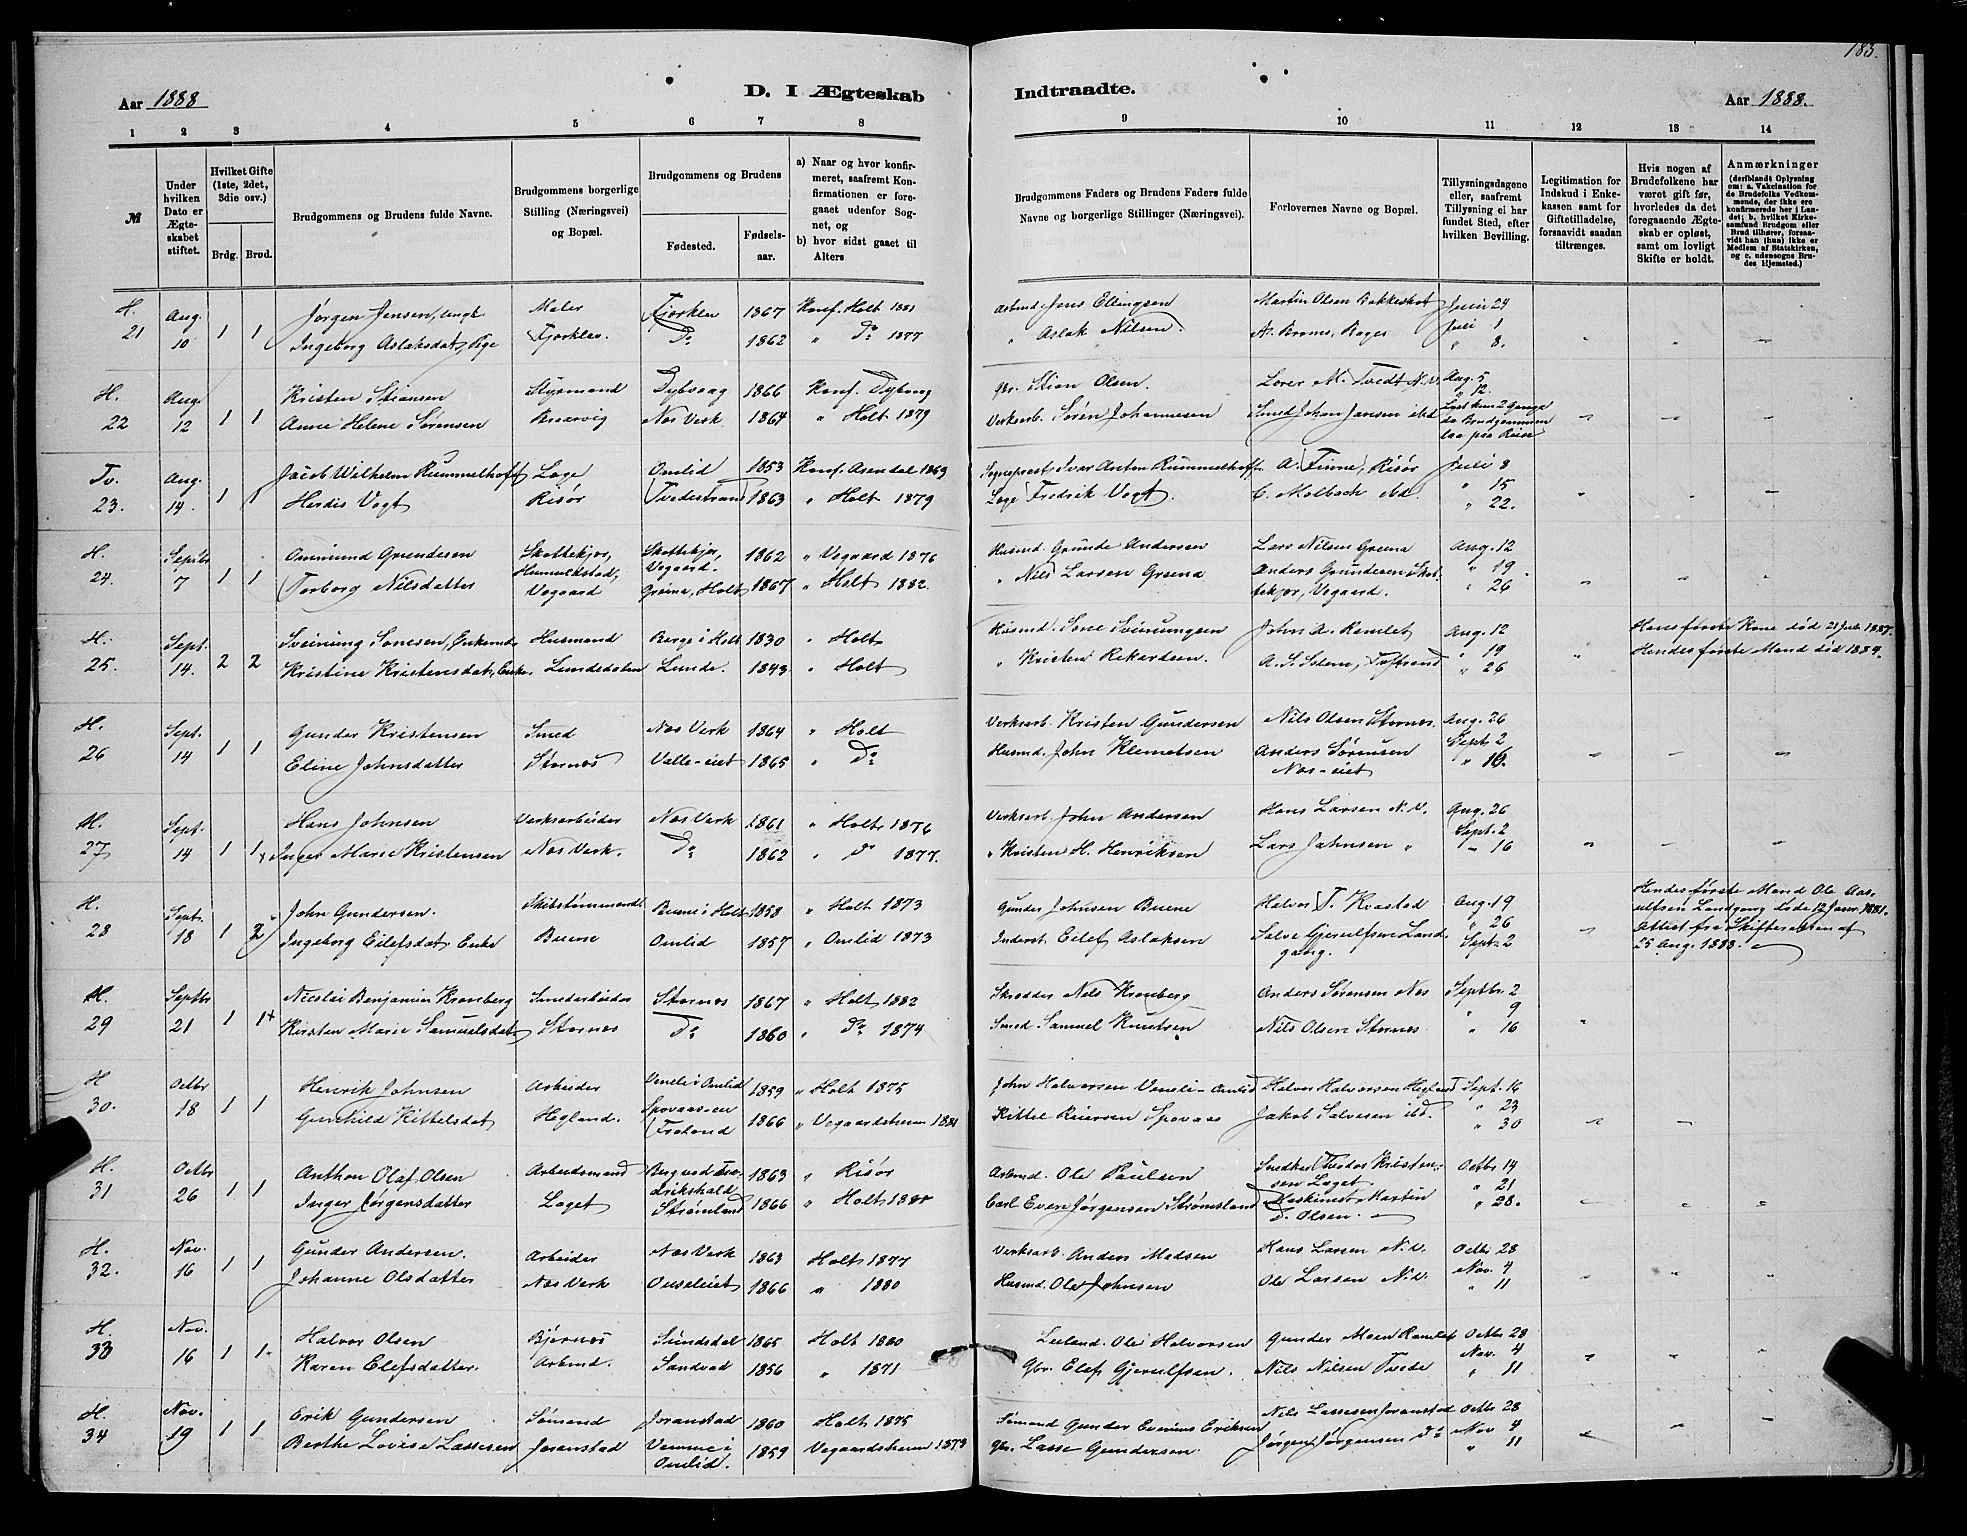 183.
Aar 1888
D. I Ægteskab
Indtraadte.
Aar 1888.
1 2 3 4 5 6 7 8 9 10 11 12 13 14
№
Under hvilken Dato er Ægteskabet stiftet.
Hvilket Gifte (1ste, 2det, 3die osv.)
Brdg. Brud.
Brudgommens og Brudens fulde Navne.
Brudgommens borgerlige Stilling (Næringsvei) og Bopæl.
Brudgommens og Brudens
Fødested.
Fødselsaar.
a) Naar og hvor konfirmeret, saafremt Konfirmationen er foregaaet udenfor Sognet, og
b) hvor sidst gaaet til Alters
Brudgommens Faders og Brudens Faders fulde Navne og borgerlige Stillinger (Næringsvei).
Forlovernes Navne og Bopæl.
Tillysningsdagene eller, saafremt Tillysning ei har fundet Sted, efter hvilken Bevilling.
Legitimation for Indskud i Enkekassen samt for Giftetilladelse, forsaavidt saadan tiltrænges.
Hvis nogen af Brudefolkene har været gift før, hvorledes da det foregaaende Ægteskab er opløst, samt om lovligt Skifte er holdt.
Anmærkninger (deriblandt Oplysning om: a. Vakcination for de Brudefolks Vedkommende, der ikke ere konfirmerede her i Landet; b. hvilket Kirkesamfund Brudgom eller Brud tilhører, forsaavidt han (hun) ikke er Medlem af Statskirken, og c. udensogns Brudes Hjemsted.)
H. Aug. Jørgen Jensen, Ungk. Maler Fjorklev 1867 Konf. Holt 1881 Arbmd. Jens Ellingsen Martin Olsen Bakkeskot Juni 24
21 10 1 1 Ingeborg Aslaksdat. Pige Fjorklev. Do 1862 " Do 1877 " Aslak Nilsen. A. Broms, Bager Juli 1
" 8.
H. Aug. Kristen Stiansen Styrmand Dybvaag 1866 Konf. Dybvag Gbr. Stian Olsen. Lorer M. Tvedt N.V. Aug. 5
" 12.
22 12 1 1 Anne Helene Sørensen Braavig Nas Verk 1864 " Holt 1879 Verksarb. Søren Johannesen Smed Johan Jansen ibd Lyst kun 2 Gange
da Brudgommen
laa paa Reise
Tv. Aug. Jacob Wilhelm Rummelhoff Læge Omlid 1853 Konf. Arendal 1869 Sogneprest Ivar Anton Rummelhoff A. Finne, Risør Juli 8
23. 14 1 1 Herdis Vogt Risør Tvedestrand 1863 " Holt 1879 Læge Fredrik Vogt. C. Molbach ibd. " 15
" 22.
H. Septbr Ommund Grundesen Skottekjør, Skottekjør, 1862 " Vegaard 1876 Husmd. Grunde Andersen Lars Nilsen Grema Aug. 12
Vegaard.
24. 7 1 1 Torborg Nilsdatter Vegaard Grema, Holt 1867 " Holt 1882. " Nils Larsen Grema Anders Grundesen Skot- " 19
tekjør, Vegaard. " 26
H. Sept. Sveinung Sonesen, Enkemd. Husmand Berge i Holt 1830 " Holt Husmd. Sone Sveinungsen John A. Ramlet Aug. 12 Hans første Kone død 21 Juli 1887.
25. 14. 2 2 Kristine Kristensdat, Enke. Lundedalen Lunde. 1843 " Holt " Kristen Rekardsen. " 19 Hendes første Mand død 1884.
" 26
H. Sept. Gunder Kristensen Smed Nas Verk 1864 " Holt Verksarb. Kristen Gundersen Nils Olsen Stornes Aug. 26
26 14 1 1 Eline Johnsdatter Stornes Valle-eiet 1865 " Do Husmd. John Klemetsen Anders Sørensen Sept. 2
Nas-eiet " 16.
H. Sept. Hans Johnsen Verksarbeider Nas Verk 1861 " Holt 1876 Verksarb. John Andersen Hans Larsen N.V. Aug. 26
27 14 1 1 Inger Marie Kristensen Nas Verk. Do 1862 " Do 1877. " Kristen H. Henriksen Lars Johnsen " Sept. 2
" 16
H. Sept. John Gundersen. Skibstømmermand Buene i Holt 1858 " Holt 1873 Gunder Johnsen Buene Halvor T. Kvastad Aug. 19 Hendes første Mand Ole Aas-
ulfsen Landgang døde 12 Janr. 1881.
28 18 1 2 Ingeborg Eilefsdat. Enke Buene Omlid 1857 " Omlid 1873 Inderst Eilef Aslaksen Salve Gjerulfsen Land- " 26 Attest fra Skifteretten af
gang. Sept. 2 25 Aug. 1883.
H. Septbr Nicolai Benjamin Kronberg Smedarbeider Stornes 1867 " Holt 1882 Skrædder Nils Kronberg Anders Sørensen Nas Septbr. 2
29 21 1 1 Kirsten Marie Samuelsdat. Stornes Do 1860 " Do 1874 Smed Samuel Knutsen Nils Olsen Stornes " 9
" 16
H Octbr Henrik Johnsen Arbeider Veneli i Omlid 1859 " Holt 1875 John Halvorsen Veneli - Omlid Halvor Halvorsen Hegland Sept. 16
30. 18 1 1 Gunhild Kittelsdat Hegland. Spovaas-en 1866 " Vegaardsheien 1881 Kittel Reiersen Spovaas Jakob Salvesen ibd. " 23
Froland " 30
H. Octbr Anthon Olaf Olsen Arbeidsmand Bergved Fre- 1863 " Risør Arbmd. Ole Paulsen Snedker Theodor Kristen- Octbr 14
drikshald sen Laget. " 21
31 26 1 1 Inger Jørgensdatter Laget Strømland 1866 " Holt 1880 Carl Even Jørgensen Strømsland Maskinist Martin " 28.
D. Olsen.
H. Nov. Gunder Andersen. Arbeider Nas Verk 1863 Holt 1877 Verksarb. Anders Madsen Hans Larsen N.V. Octbr 28
32. 16 1 1 Johanne Olsdatter Nas Verk 1866 " 1880 Husmd. Ole Johnsen Ole Larsen N.V. Nov. 4
" 11
H. Nov. Halvor Olsen Bjornes Sundsdal 1865 Holt 1880 Leiland. Ole Halvorsen Gunder Moen Ramlet Octbr 28
33 16 1 1 Karen Elefsdatter. Arbmd. Sandvad 1856 " 1871 Gbr. Elef Gjerulfsen. Nils Nilsen Tvede Nov. 4
" 11
H. Nov. Erik Gundersen Sømand Joranstad 1860 Holt 1875 Sømand Gunder Evenius Eriksen Nils Lassesen Joranstad Octbr 28
34 19 1 1 Berthe Lovise Lassesen Joranstad Vemme i 1859 Vegaardsheien 1873 Gbr. Lasse Gundersen. Jørgen Jørgensen Do Nov 4
Omlid. " 11